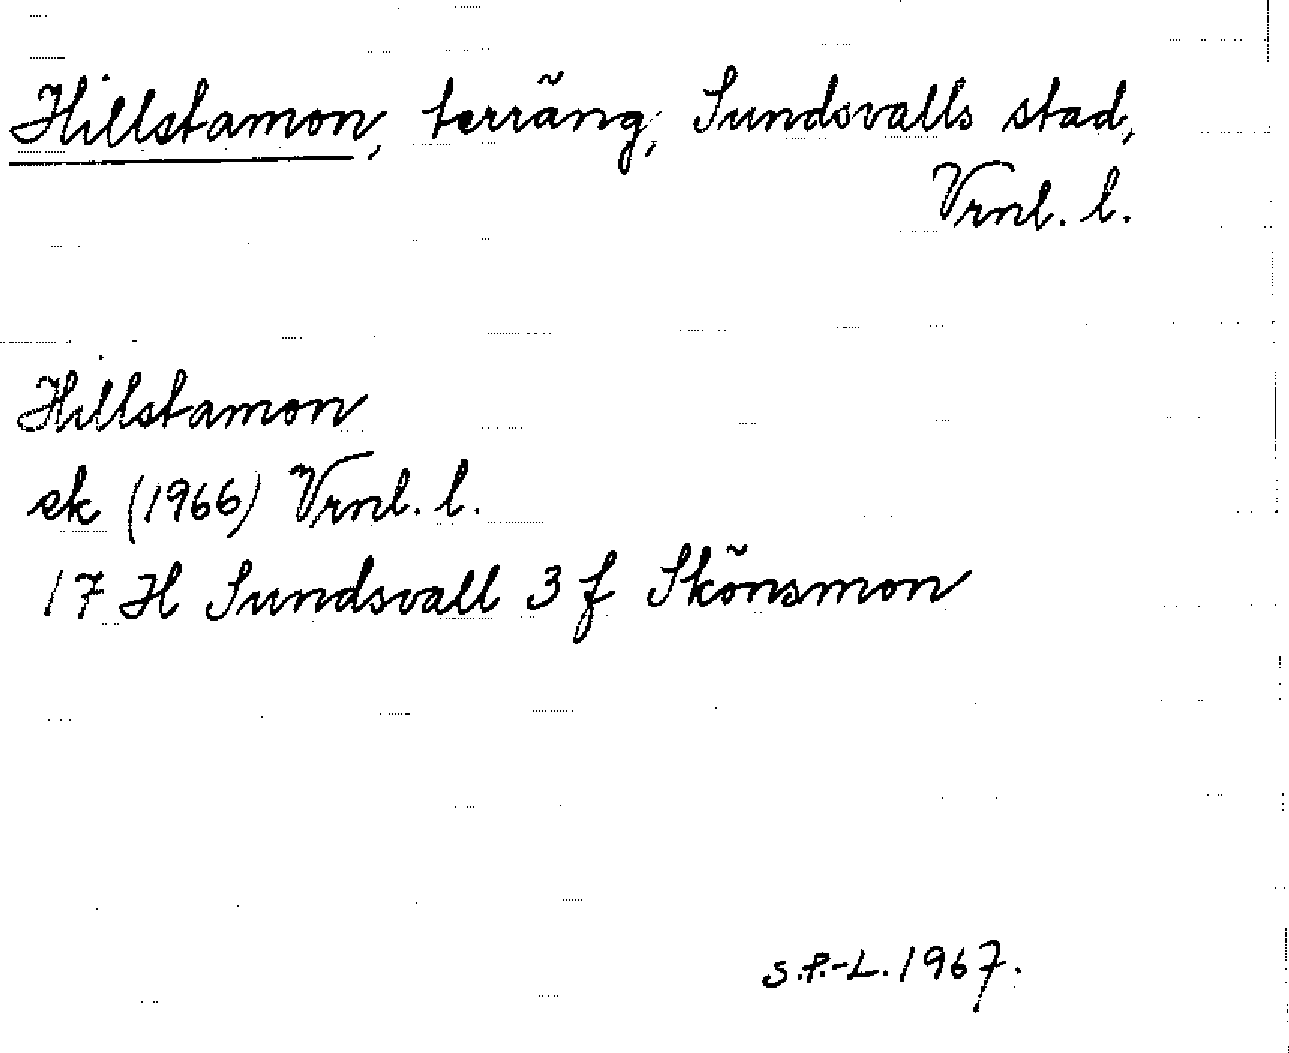 Hillstamon, terräng, Sundsvalls stad,
Vrnl. l.
Hillstamon
ek (1966) Vrnl. l.
17 H Sundsvall 3 f Skönsmon
S.P.-L. 1967.